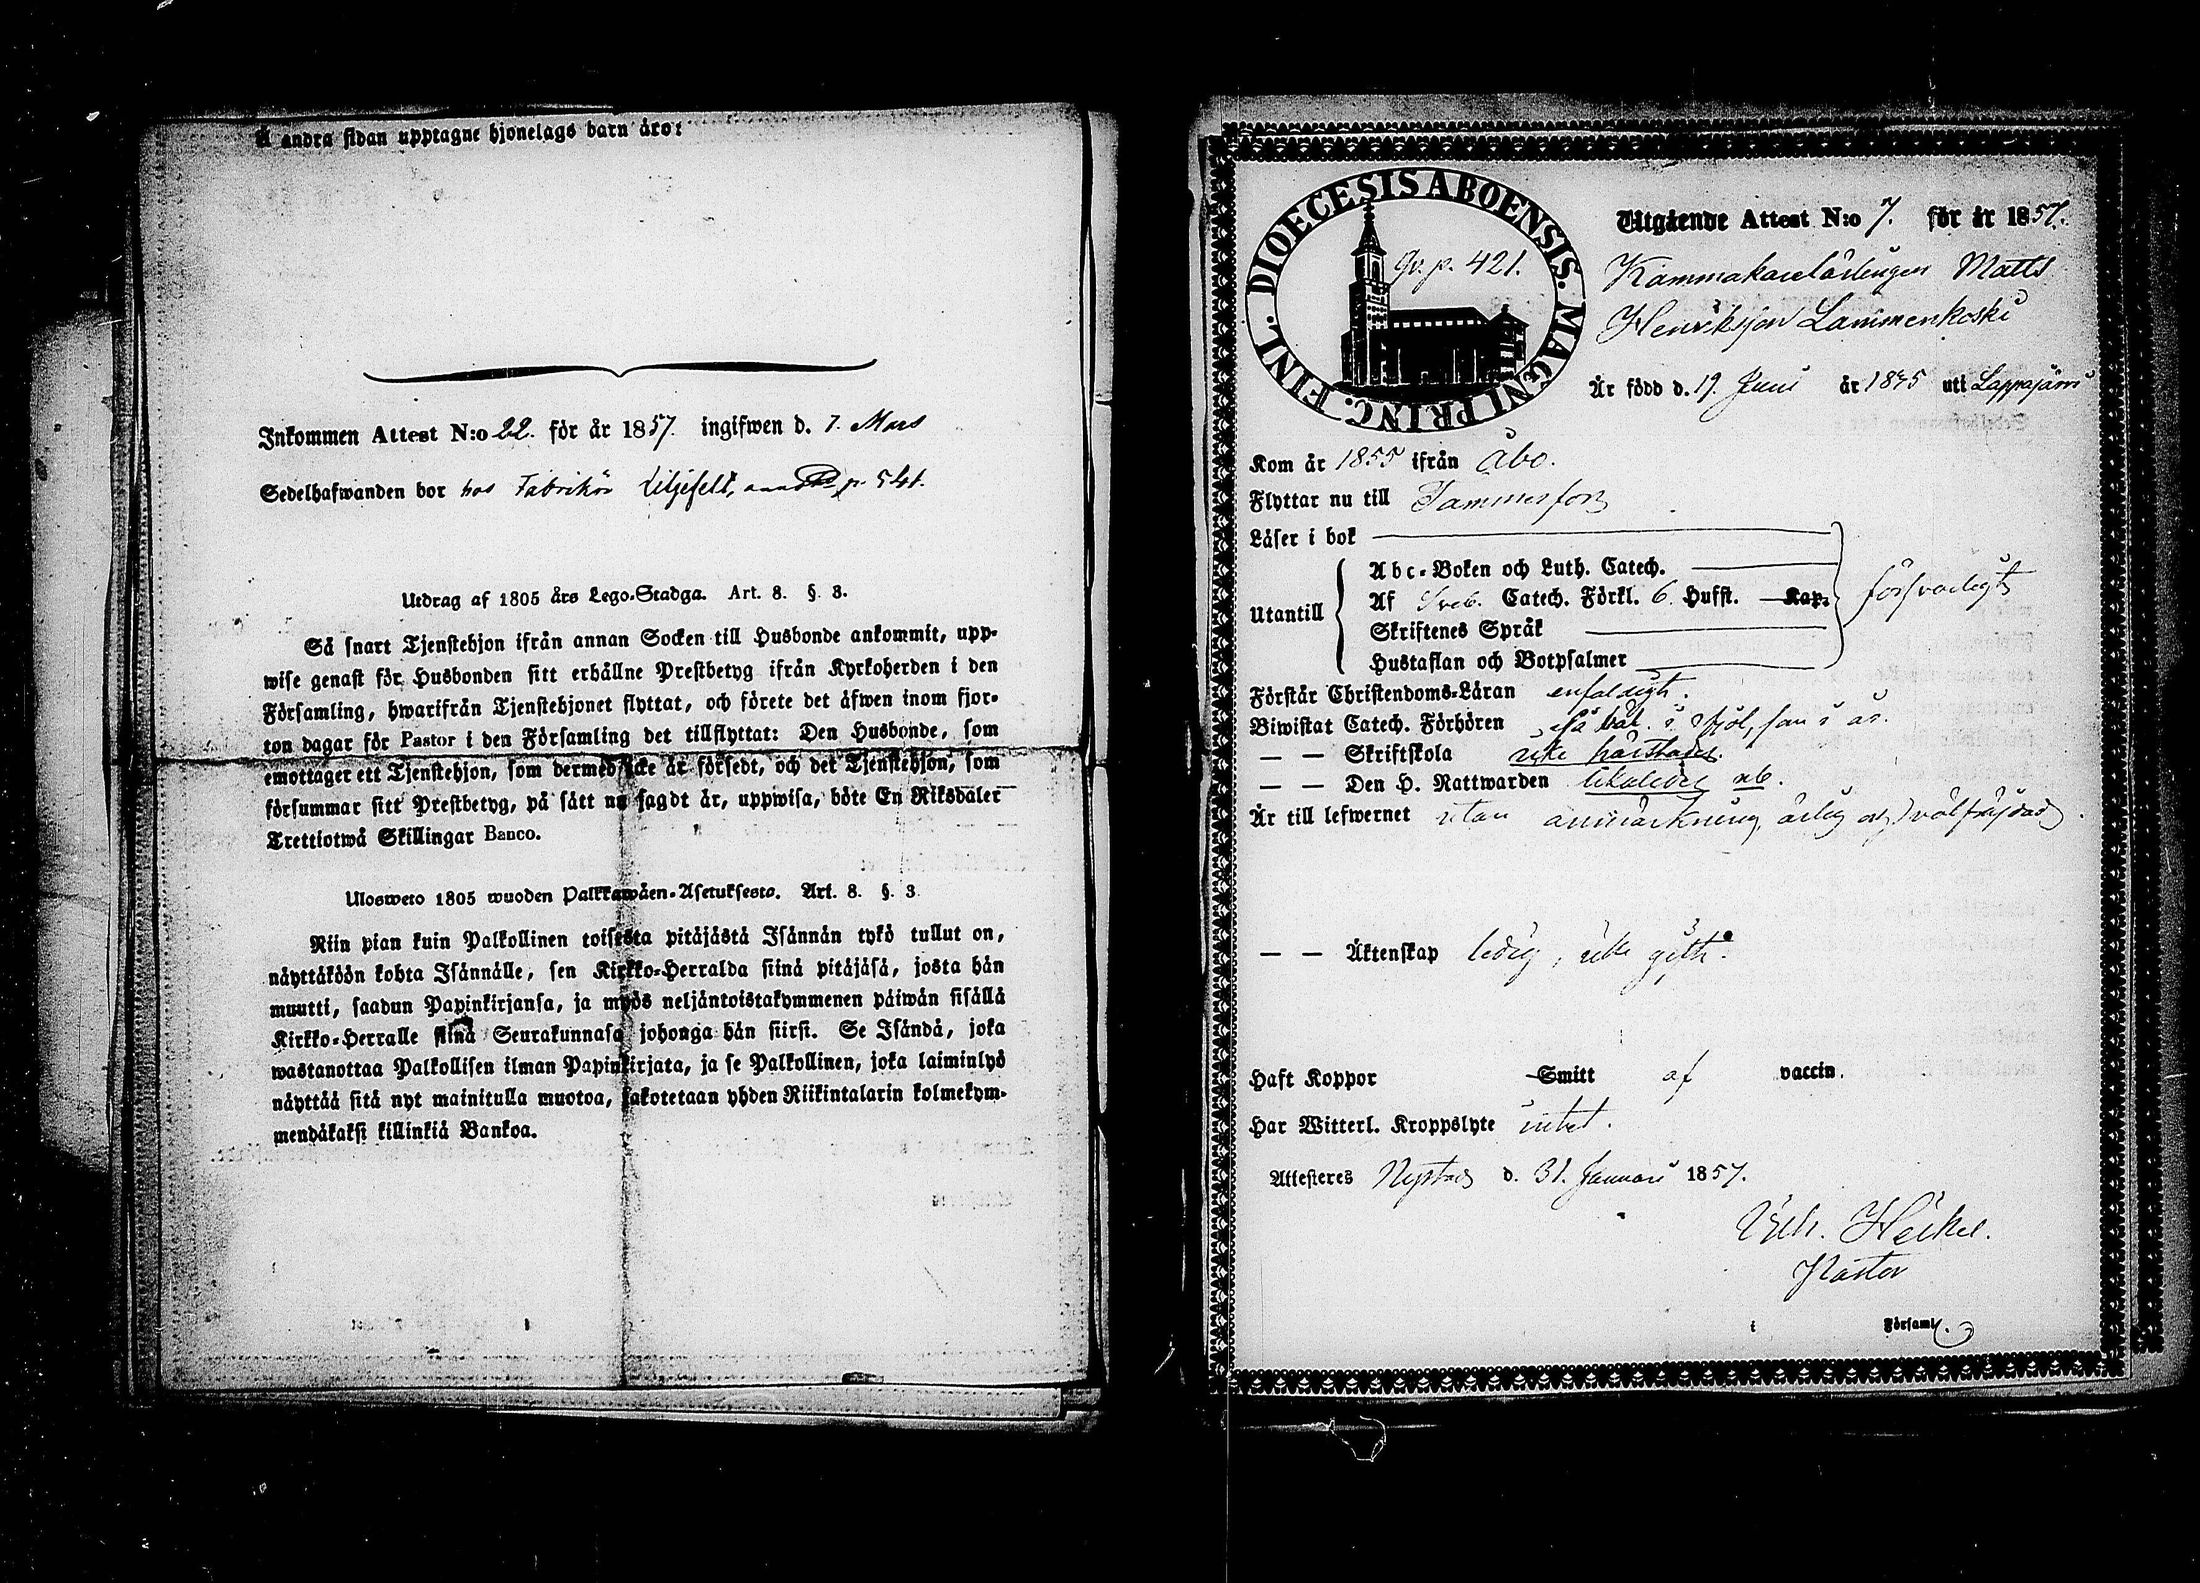 Å andra sidan upptagne hjonelags barn äro:
Inkommen Attest N:o 22. för år 1857. ingifwen d. 7. Mars
Sedelhafwanden bor hos Fabrikör Liljefelt,
Utdrag af 1805 års Lego-Stadga. Art. 8. §. 3.
Så snart Tjenstehjon ifrån annan Socken till Husbonde ankommit, upp-
wise genast för Husbonden sitt erhållne Prestbetyg ifrån Kyrkoherden i den
Församling, hwarifrån Tjenstehjonet flyttat, och förete det äfwen inom fjor-
ton dagar för Pastor i den Församling det tillflyttat: Den Husbonde, som
emottager ett Tjenstehjon, som dermed icke är försedt, och det Tjenstehjon, som
försummar sitt Prestbetyg, på sätt nu sagdt är, uppwisa, böte En Riksdaler
Trettiotwå Skillingar Banco.
Ulosweto 1805 wuoden Palkkawäen-Asetuksesta. Art. 8. §. 3
Niin pian kuin Palkollinen toisesta pitäjästä Isännän tykö tullut on,
näyttäköön kohta Isännälle, sen Kirkko-Herralda siinä pitäjäsä, josta hän
muutti, saadun Papinkirjansa, ja myös neljäntoistakymmenen päiwän sisällä
Kirkko-Herralle siinä Seurakunnasa johonga hän siirsi. Se Isändä, joka
wastanottaa Palkollisen ilman Papinkirjata, ja se Palkollinen, joka laiminlyö
näyttää sitä nyt mainitulla muotoa, sakotetaan yhden Riikintalarin kolmekym-
mendäkaksi killinkiä Bankoa.
DIOECESIS ABOENSIS. MAGNI PRINC. FINL.
Gv. p. 421.
Utgående Attest N:o 7. för år 1857.
Kammakarelärlingen Matts
Henriksson Lammenkoski
Är född d. 19. Juni år 1835 uti Lappajärvi
Kom år 1855 ifrån Åbo.
Flyttar nu till Tammerfors
Läser i bok
Abc-Boken och Luth. Catech.
Utantill Af Sveb. Catech. Förkl. 6. Hufst. Kap. försvarligt
Skriftenes Språk
Hustaflan och Botpsalmer
Förstår Christendoms-Läran enfaldigt.
Biwistat Catech. Förhören
— — Skriftskola icke härstädes.
— — Den H. Nattwarden likaledes
Är till lefwernet utan anmärkning, ärlig och välfräjdad.
— — Äktenskap ledig, icke gift.
Haft Koppor Smitt af vaccin.
Har Witterl. Kroppslyte intet.
Attesteres Nystad d. 31. Januari 1857.
Heikel.
Pastor
i Församl.